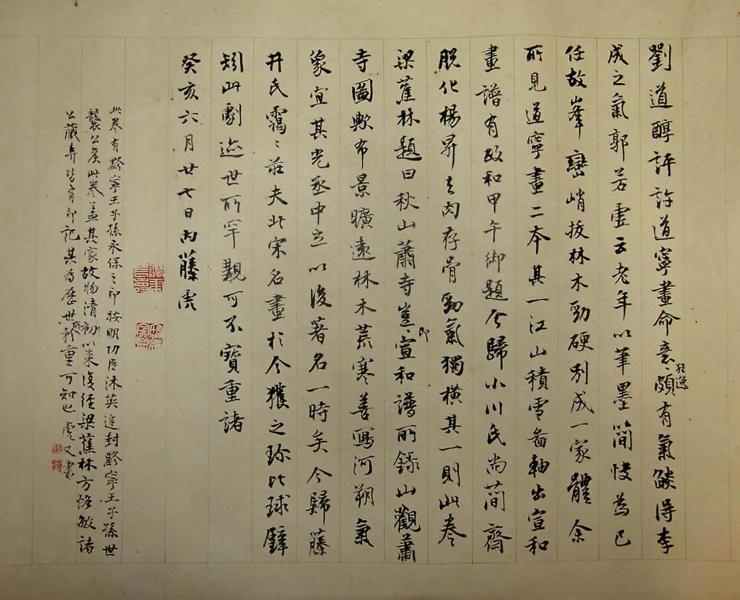 劉道醇評許道寧畫命意狂逸頗有氣燄得李
成之氣郭若虛云老年以筆墨簡快為己
任故峯巒峭拔林木勁硬別成一家體余
所見道寧畫二本其一江山積雪畫軸出宣和
畫譜有政和甲午御題今歸小川氏尚簡齋
脫化楊昇去肉存骨勁氣獨橫其一則此卷
梁蕉林題曰秋山蕭寺豈即宣和譜所錄山觀蕭
寺圖歟布景曠遠林木荒寒善寫河朔氣
象宜其光丞中立以後著名一時矣今歸藤
井氏靄々莊夫北宋名畫於今獲之珍比球璧
矧此劇迹世所罕觀可不寶重諸
癸亥六月廿七日內藤虎
此卷有黔寧王子孫永保之印按明功臣沐英追封黔寧王子孫世
襲公爵此卷蓋其家故物清初以來復經梁蕉林方恪敏諸
公藏弆皆有印記其為歷世所珍重可知也 虎又書